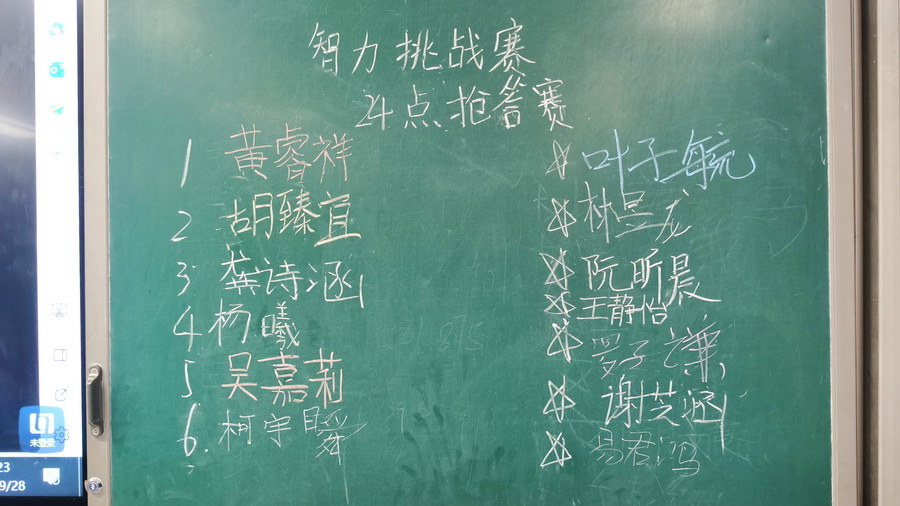 智力挑战赛
24点抢答赛
1 黄睿祥
2 胡臻宜
3 龚诗涵
4 杨曦
5 吴嘉莉
6. 柯宇舜
☆ 叶子毓
☆ 林昱龙
☆ 阮昕晨
☆ 王静怡
☆ 罗子谦
☆ 谢芝涵
☆ 易君鸿
未登录
23
9/28